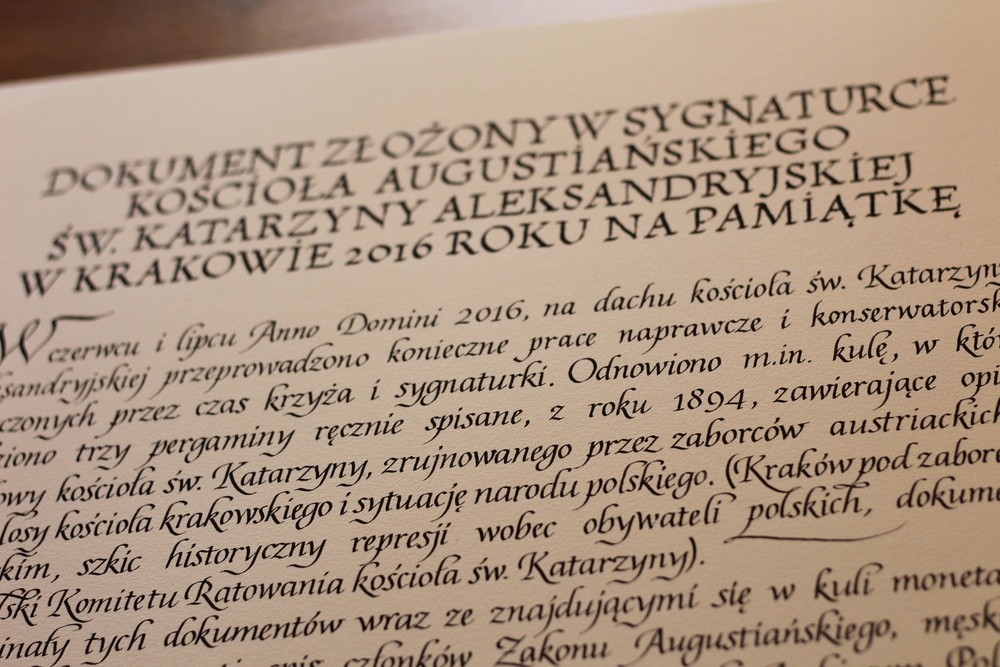 DOKUMENT ZŁOŻONY W SYGNATURCE
KOŚCIOŁA AUGUSTIAŃSKIEGO
ŚW. KATARZYNY ALEKSANDRYJSKIEJ
W KRAKOWIE 2016 ROKU NA PAMIĄTKĘ
W czerwcu i lipcu Anno Domini 2016, na dachu kościoła św. Katarzyny
sandryjskiej przeprowadzono konieczne prace naprawcze i konserwatorsk
czonych przez czas krzyża i sygnaturki. Odnowiono m.in. kulę, w któr
ziono trzy pergaminy ręcznie spisane, z roku 1894, zawierające opi
owy kościoła św. Katarzyny, zrujnowanego przez zaborców austriackich
losy kościoła krakowskiego i sytuację narodu polskiego. (Kraków pod zabore
kim, szkic historyczny represji wobec obywateli polskich, dokume
ski Komitetu Ratowania kościoła św. Katarzyny).
inały tych dokumentów wraz ze znajdującymi się w kuli moneta
spis członków Zakonu Augustiańskiego, męsk